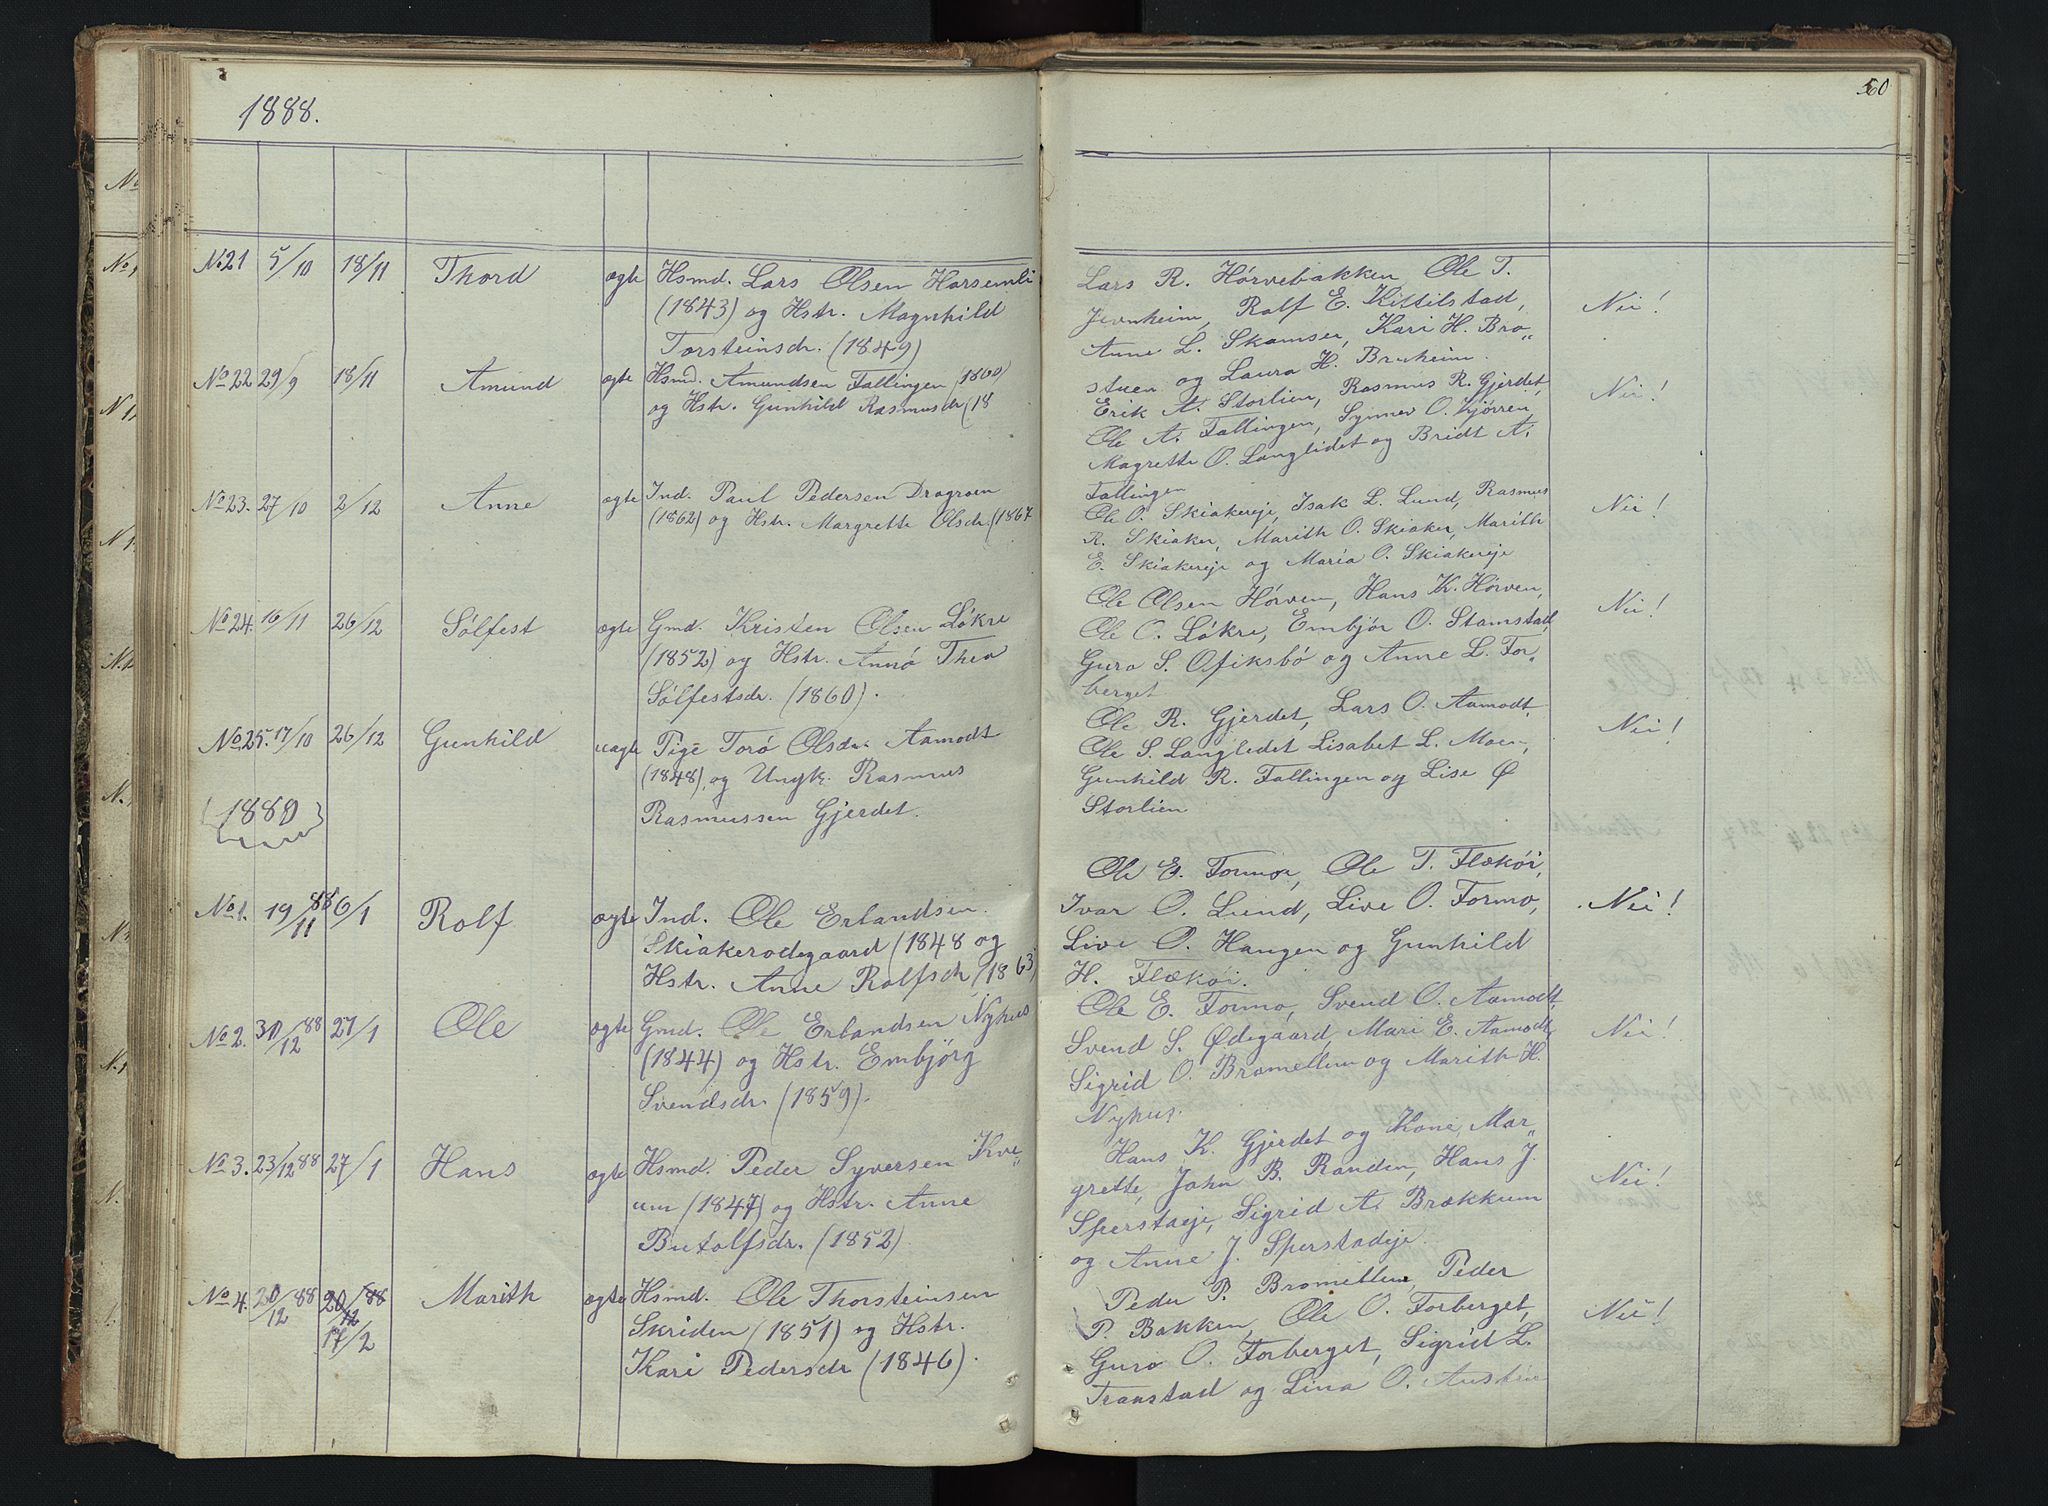 1888.
No 21 5/10 18/11 Thord ægte Hsmd. Lars Olsen Harsemli
(1843) og Hstr. Magnhild
Torsteinsdr. (1849)
No 22 29/9 18/11 Amund ægte Hsmd. Amundsen Fallingen (1860)
og Hstr. Gunhild Rasmusdr (18
No 23. 27/10 2/12 Anne ægte Ind. Paul Pedersen
(1862) og Hstr. Margrethe Olsdr. (1867
No 24. 16/11 26/12 Sølfest ægte Gmd. Kristen Olsen Løkre
(1852) og Hstr. Thea
Sølfestsdr. (1860).
No 25. 17/10 26/12 Gunhild uægte Pige Torø Olsdr. Aamodt
(1848), og Ungk. Rasmus
Rasmussen Gjerdet.
1889
No 1. 19/11 88 6/1 Rolf ægte Ind. Ole Erlandsen
Skiakerødegaard (1848 og
Hstr. Anne Rolfsdr (1863)
No 2. 30/12 88 27/1 Ole ægte Gmd. Ole Erlandsen Nyhus
(1844) og Hstr. Embjørg
Svendsdr. (1859).
No 3. 23/12 88 27/1 Hans ægte Hsmd. Peder Syversen Kve„
um (1847) og Hstr. Anne
Butolfsdr. (1852)
No 4. 20/12 88 20/12 88 Marith ægte Hsmd. Ole Thorsteinsen
17/2 Skriden (1851) og Hstr.
Kari Pedersdr (1846).
60
Lars R. Hørvebakken, Ole T.
Jevnheim, Rolf E. Kittilstad,
Anne L. Skamser, Kari H. Bru„
stuen og Laura H. Bruheim.
Nei!
Erik A. Storlien, Rasmus R. Gjerdet,
Ole A. Fallingen, Synnev O. Kjørren,
Magrette O. Langlidet og Bridt A.
Fallingen
Nei!
Ole O. Skiakereje, Isak L. Lund, Rasmus
R. Skiaker, Marith O. Skiaker, Marith
E. Skiakereje og Maria O. Skiakereje
Nei!
Ole Olsen Hørven, Hans K. Hørven,
Ole O. Løkre, Embjør O. Stamstad,
Guro S. Ofiksbø og Anne L. For„
berget
Nei!
Ole R. Gjerdet, Lars O. Aamodt,
Ole S. Langledet Lisabet L. Moen,
Gunhild R. Fallingen og Lise Ø
Storlien
Nei!
Ole E. Formo, Ole T. Flækøi,
Ivar O. Lund, Live O. Formo,
Live O. Haugen og Gunhild
H. Flækøi.
Nei!
Ole E. Formo, Svend O. Aamodt,
Svend S. Ødegaard, Mari E. Aamodt,
Sigrid O. Bromellem og Marith H.
Nyhus.
Nei!
Hans K. Gjerdet og Kone Mar„
grette, John B. Randen, Hans J.
Sperstaeje, Sigrid A. Brækkum
og Anne J. Sperstadeje.
Nei!
Peder P. Bromellem, Peder
P. Bakken, Ole O. Forberget,
Guro O. Forberget, Sigrid L.
Transtad og Lina O.
Nei!